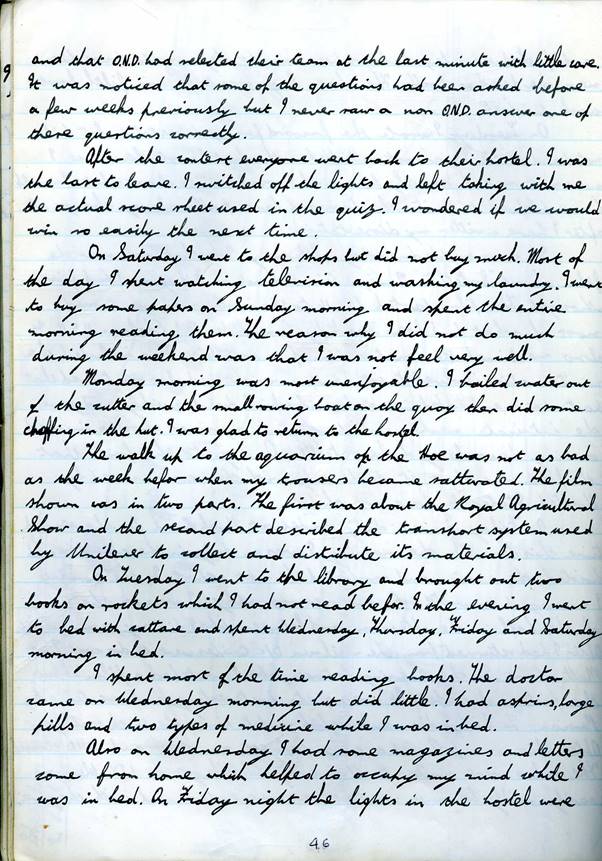 and that O.N.D. had selected their team at the last minute with little care.
It was noticed that some of the questions had been asked before
a few weeks previously but I never saw a non O.N.D. answer one of
these questions correctly.
After the contest everyone went back to their hostel. I was
the last to leave. I switched off the lights and left taking with me
the actual score sheet used in the quiz. I wondered if we would
win so easily the next time.
On Saturday I went to the shops but did not buy much. Most of
the day I spent watching television and washing my laundry. I went
to buy some papers on Sunday morning and spent the entire
morning reading them. The reason why I did not do much
during the weekend was that I was not feel very well.
Monday morning was most unenjoyable. I bailed water out
of the cutter and the small rowing boat on the quay then did some
in the hut. I was glad to return to the hostel.
The walk up to the aquarium on the Hoe was not as bad
as the week befor when my trousers became sattwated. The film
shown was in two parts. The first was about the Royal Agricultural
Show and the second part described the transport system used
by Unilever to collect and distribute its materials.
On Tuesday I went to the library and brought out two
books on rockets which I had not read befor. In the evening I went
to bed with cattare and spent Wednesday, Thursday, Friday and Saturday
morning in bed.
I spent most of the time reading books. The doctor
came on Wednesday morning but did little. I had asprins, large
pills and two types of medicine while I was in bed.
Also on Wednesday I had some magazines and letters
come from home which helped to occupy my mind while I
was in bed. On Friday night the lights in the hostel were
46